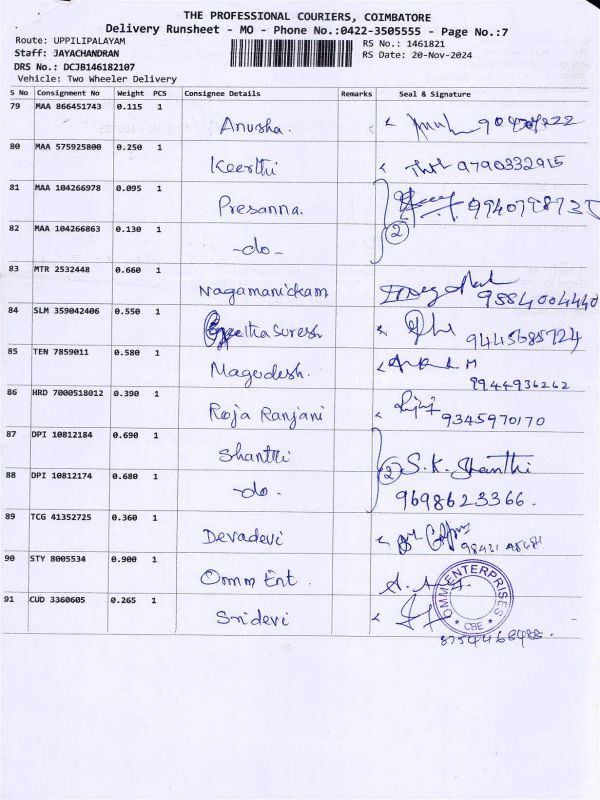 THE PROFESSIONAL COURIERS, COIMBATORE
Delivery Runsheet - MO - Phone No.:0422-3505555 - Page No.:7
Route: UPPILIPALAYAM
Staff: JAYACHANDRAN
DRS No.: DCJB146182107
Vehicle: Two Wheeler Delivery
RS No.: 1461821
RS Date: 20-Nov-2024
S No Consignment No Weight PCS Consignee Details Remarks Seal & Signature
79 MAA 866451743 0.115 1 Anusha.
80 MAA 575925800 0.250 1 Keerthi 9790332915
81 MAA 104266978 0.095 1 Presanna. 9940798735
82 MAA 104266863 0.130 1 -do- 2
83 MTR 2532448 0.660 1 Nagamanickam 9884004440
84 SLM 359042406 0.550 1 Geetha Suresh
85 TEN 7859011 0.580 1 Magudesh. 9944936262
86 HRD 7000518012 0.390 1 Roja Ranjani 9345970170
87 DPI 10812184 0.690 1 Shanthi 2 S.K. Shanthi
88 DPI 10812174 0.680 1 -do- 9698623366.
89 TCG 41352725 0.360 1 Devadevi
90 STY 8005534 0.900 1 Omm Ent.
OMM ENTERPRISES
* CBE *
91 CUD 3360605 0.265 1 Sridevi